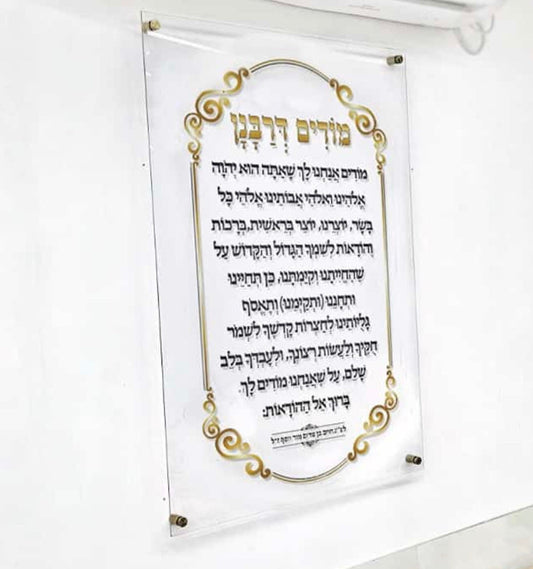 מוֹדִים דְּרַבָּנָן
מוֹדִים אֲנַחְנוּ לָךְ שָׁאַתָּה הוּא יְהֹוָה
אֱלֹהֵינוּ וֵאלֹהֵי אֲבוֹתֵינוּ אֱלֹהֵי כָל
בָּשָׂר, יוֹצְרֵנוּ, יוֹצֵר בְּרֵאשִׁית, בְּרָכוֹת
וְהוֹדָאוֹת לְשִׁמְךָ הַגָּדוֹל וְהַקָּדוֹשׁ עַל
שֶׁהֶחֱיִיתָנוּ וְקִיַּמְתָּנוּ, כֵּן תְּחַיֵּינוּ
וּתְחָנֵּנוּ (וּתְקַיְּמֵנוּ) וְתֶאֱסֹף
גָּלֻיּוֹתֵינוּ לְחַצְרוֹת קָדְשֶׁךָ לִשְׁמֹר
חֻקֶּיךָ וְלַעֲשׂוֹת רְצוֹנֶךָ, וּלְעָבְדְּךָ בְּלֵבָב
שָׁלֵם, עַל שֶׁאֲנַחְנוּ מוֹדִים לָךְ.
בָּרוּךְ אֵל הַהוֹדָאוֹת:
לע"נ חיים בן